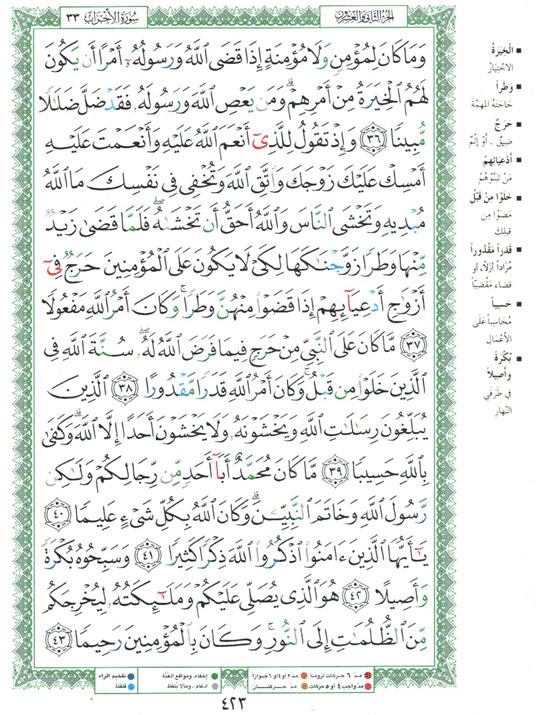 الجزء الثاني والعشرون
سُورَةُ الأَحْزَاب ٣٣
وَمَا كَانَ لِمُؤْمِنٍ وَلَا مُؤْمِنَةٍ إِذَا قَضَى ٱللَّهُ وَرَسُولُهُۥٓ أَمْرًا أَن يَكُونَ
لَهُمُ ٱلْخِيَرَةُ مِنْ أَمْرِهِمْ ۗ وَمَن يَعْصِ ٱللَّهَ وَرَسُولَهُۥ فَقَدْ ضَلَّ ضَلَٰلًا
مُّبِينًا ﴿٣٦﴾ وَإِذْ تَقُولُ لِلَّذِىٓ أَنْعَمَ ٱللَّهُ عَلَيْهِ وَأَنْعَمْتَ عَلَيْهِ
أَمْسِكْ عَلَيْكَ زَوْجَكَ وَٱتَّقِ ٱللَّهَ وَتُخْفِى فِى نَفْسِكَ مَا ٱللَّهُ
مُبْدِيهِ وَتَخْشَى ٱلنَّاسَ وَٱللَّهُ أَحَقُّ أَن تَخْشَىٰهُ ۖ فَلَمَّا قَضَىٰ زَيْدٌ
مِّنْهَا وَطَرًا زَوَّجْنَٰكَهَا لِكَىْ لَا يَكُونَ عَلَى ٱلْمُؤْمِنِينَ حَرَجٌ فِىٓ
أَزْوَٰجِ أَدْعِيَآئِهِمْ إِذَا قَضَوْا۟ مِنْهُنَّ وَطَرًا ۚ وَكَانَ أَمْرُ ٱللَّهِ مَفْعُولًا
﴿٣٧﴾ مَّا كَانَ عَلَى ٱلنَّبِىِّ مِنْ حَرَجٍ فِيمَا فَرَضَ ٱللَّهُ لَهُۥ ۖ سُنَّةَ ٱللَّهِ فِى
ٱلَّذِينَ خَلَوْا۟ مِن قَبْلُ ۚ وَكَانَ أَمْرُ ٱللَّهِ قَدَرًا مَّقْدُورًا ﴿٣٨﴾ ٱلَّذِينَ
يُبَلِّغُونَ رِسَٰلَٰتِ ٱللَّهِ وَيَخْشَوْنَهُۥ وَلَا يَخْشَوْنَ أَحَدًا إِلَّا ٱللَّهَ ۗ وَكَفَىٰ
بِٱللَّهِ حَسِيبًا ﴿٣٩﴾ مَّا كَانَ مُحَمَّدٌ أَبَآ أَحَدٍ مِّن رِّجَالِكُمْ وَلَٰكِن
رَّسُولَ ٱللَّهِ وَخَاتَمَ ٱلنَّبِيِّـۧنَ ۗ وَكَانَ ٱللَّهُ بِكُلِّ شَىْءٍ عَلِيمًا ﴿٤٠﴾
يَٰٓأَيُّهَا ٱلَّذِينَ ءَامَنُوا۟ ٱذْكُرُوا۟ ٱللَّهَ ذِكْرًا كَثِيرًا ﴿٤١﴾ وَسَبِّحُوهُ بُكْرَةً
وَأَصِيلًا ﴿٤٢﴾ هُوَ ٱلَّذِى يُصَلِّى عَلَيْكُمْ وَمَلَٰٓئِكَتُهُۥ لِيُخْرِجَكُم
مِّنَ ٱلظُّلُمَٰتِ إِلَى ٱلنُّورِ ۚ وَكَانَ بِٱلْمُؤْمِنِينَ رَحِيمًا ﴿٤٣﴾
■ الْخِيَرَةُ
الاخْتِيَارُ
■ وَطَراً
حَاجَتَهُ المُهِمَّةَ
■ حَرَجٌ
ضِيقٌ . أَوْ إثْمٌ
■ أَدْعِيَائِهِمْ
مَنْ تَبَنَّوْهُمْ
■ خَلَوْا مِنْ قَبْلُ
مَضَوْا مِن
قبلك
■ قَدَراً مَقْدُوراً
مُرَاداً أزَلاً، أو
قضاء مَقْضِيّاً
■ حَسِيباً
مُحَاسِباً عَلَى
الأَعْمَالِ
■ بُكْرَةً
وأصِيلاً
فِي طَرَفَيِ
النَّهَارِ
مدّ ٦ حركات لزوماً
مدّ ٢ أو ٤ أو ٦ جوازاً
مدّ واجب ٤ أو ٥ حركات
مدّ حركتان
إخفاء، ومواقع الغُنَّة
ادغام، وما لا يُلفَظ
تفخيم الراء
قلقلة
٤٢٣